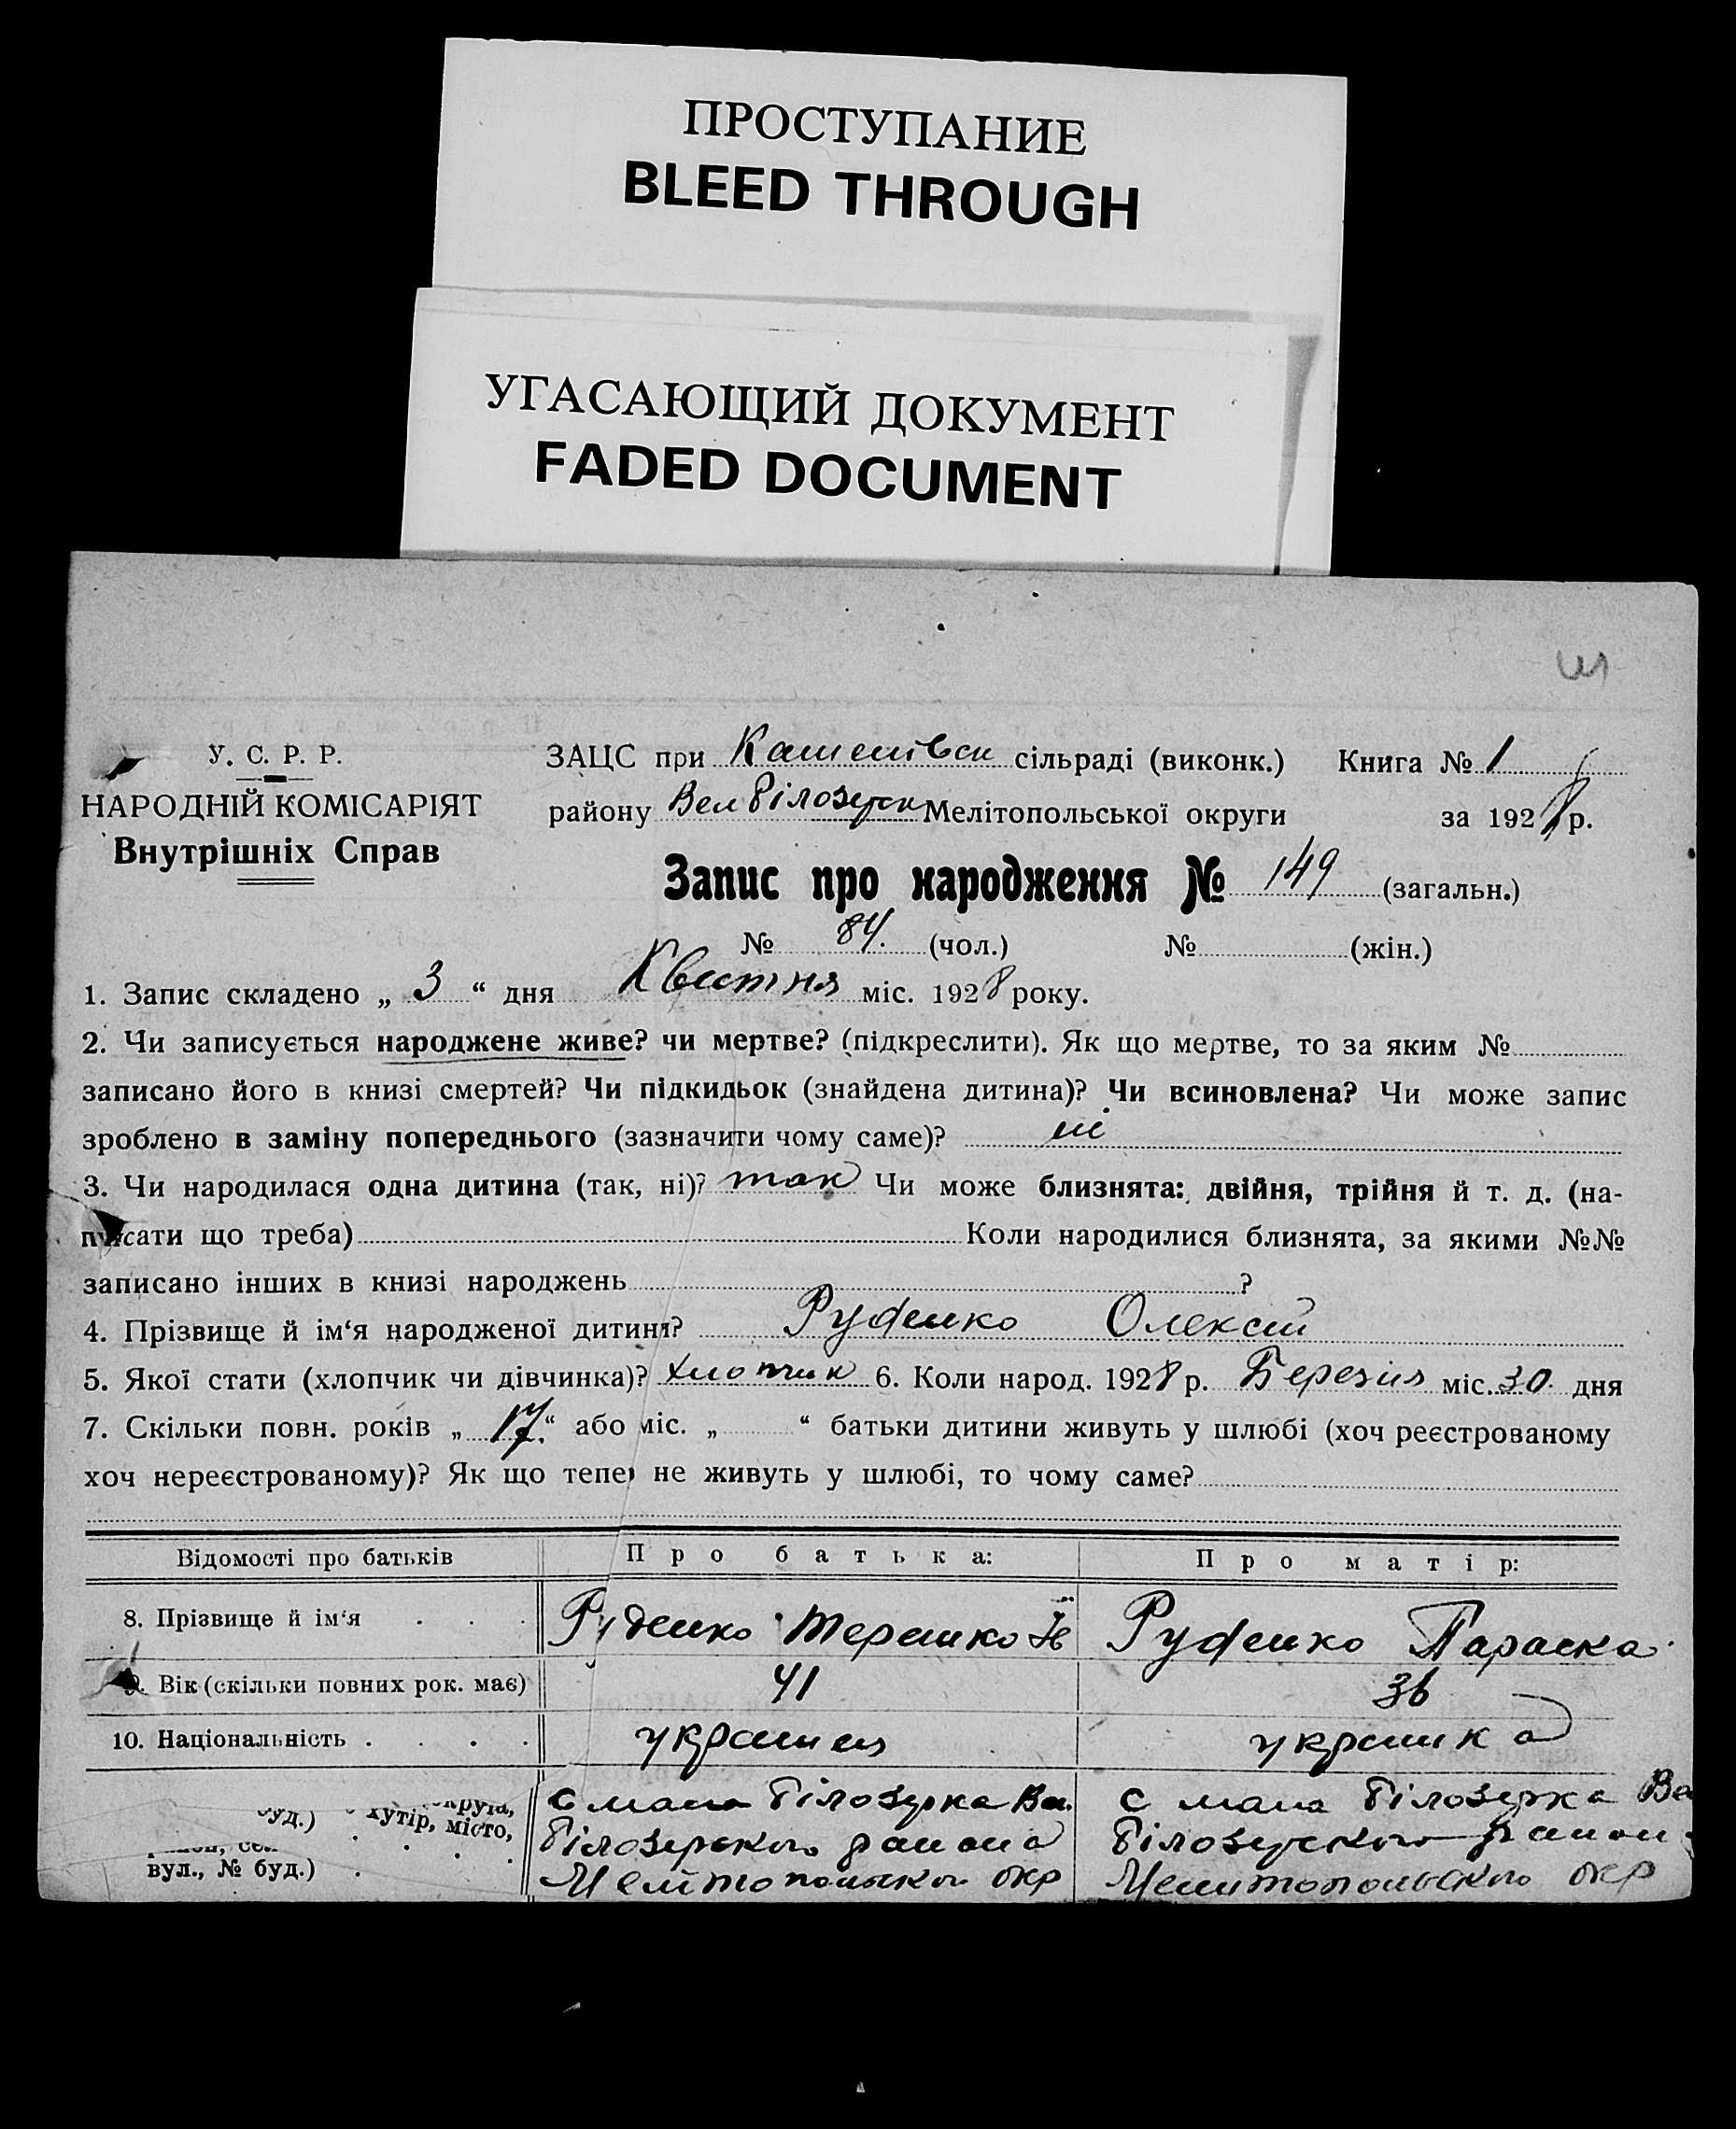 ПРОСТУПАНИЕ
BLEED THROUGH
УГАСАЮЩИЙ ДОКУМЕНТ
FADED DOCUMENT
У. С. Р. Р.
НАРОДНІЙ КОМІСАРІЯТ
Внутрішніх Справ
ЗАЦС при сільраді (виконк.) Книга № 1
району Вел Білозерк Мелітопольської округи за 1928 р.
Запис про народження № 149 (загальн.)
№ 84. (чол.) № (жін.)
1. Запис складено „ 3 “ дня Квітня міс. 1928 року.
2. Чи записується народжене живе? чи мертве? (підкреслити). Як що мертве, то за яким №
записано його в книзі смертей? Чи підкидьок (знайдена дитина)? Чи всиновлена? Чи може запис
зроблено в заміну попереднього (зазначити чому саме)? ні
3. Чи народилася одна дитина (так, ні)? так Чи може близнята: двійня, трійня й т. д. (на-
писати що треба) Коли народилися близнята, за якими №№
записано інших в книзі народжень ?
4. Прізвище й ім‘я народженої дитини? Руденко Олексій
5. Якої стати (хлопчик чи дівчинка)? хлопчик 6. Коли народ. 1928 р. Березня міс. 30 дня
7. Скільки повн. років „ 17 “ або міс. „ “ батьки дитини живуть у шлюбі (хоч реєстрованому
хоч нереєстрованому)? Як що тепер не живуть у шлюбі, то чому саме?
Відомості про батьків Про батька: Про матір:
8. Прізвище й ім‘я . . . Руденко Терешко Руденко Параска
9. Вік (скільки повних рок. має) 41 36
10. Національність . . . . українец українка
округа, с мала Білозерка Ве. с мала Білозерка Ве
буд.) хутір, місто, Білозерського района Білозерського район
вул., № буд.) . Мелітопольского окр Мелитопольского окр